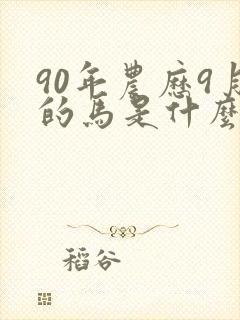 90年農歷9月
的馬是什麼
稻谷